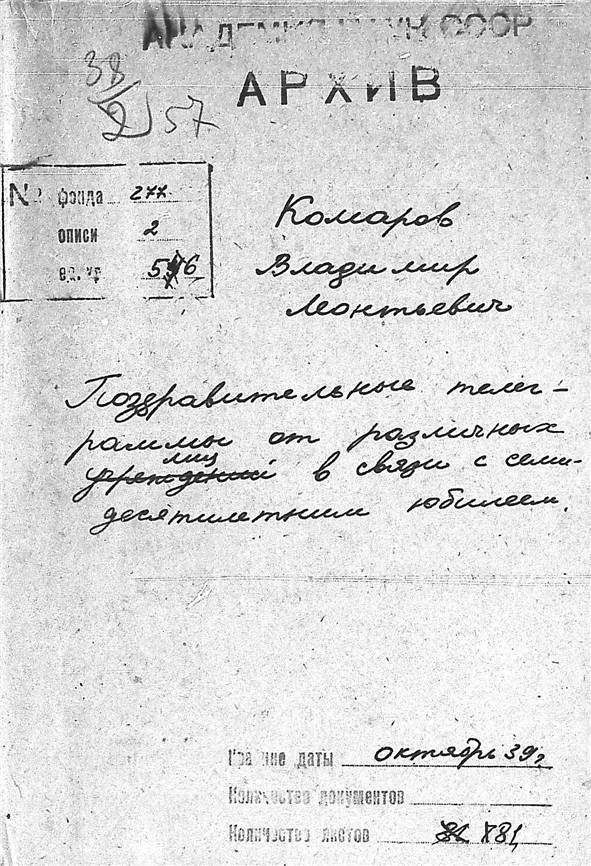 АКАДЕМИЯ НАУК СССР
АРХИВ
38/2 57
№ фонда 277
описи 2
ед. хр. 56
Комаров
Владимир
Леонтьевич
Поздравительные телег-
раммы от различных
лиц
учреждений в связи с семи-
десятилетним юбилеем.
Крайние даты октябрь 39 г.
Количество документов
Количество листов 181